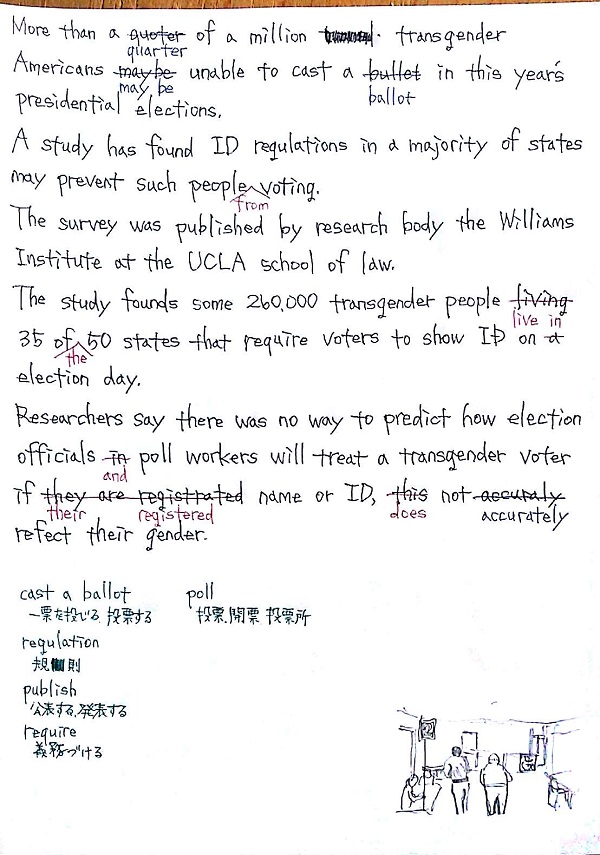 More than a quoter of a million transgender
quarter
Americans maybe unable to cast a bullet in this year's
may be ballot
presidential elections.
A study has found ID regulations in a majority of states
may prevent such people voting.
from
The survey was published by research body the Williams
Institute at the UCLA school of law.
The study founds some 260,000 transgender people living
live in
35 of 50 states that require voters to show ID on a
the
election day.
Researchers say there was no way to predict how election
officials in poll workers will treat a transgender voter
and
if they are registrated name or ID, this not accuraly
their registered does accurately
refect their gender.
cast a ballot poll
一票を投じる、投票する 投票、開票、投票所
regulation
規則
publish
公表する、発表する
require
義務づける